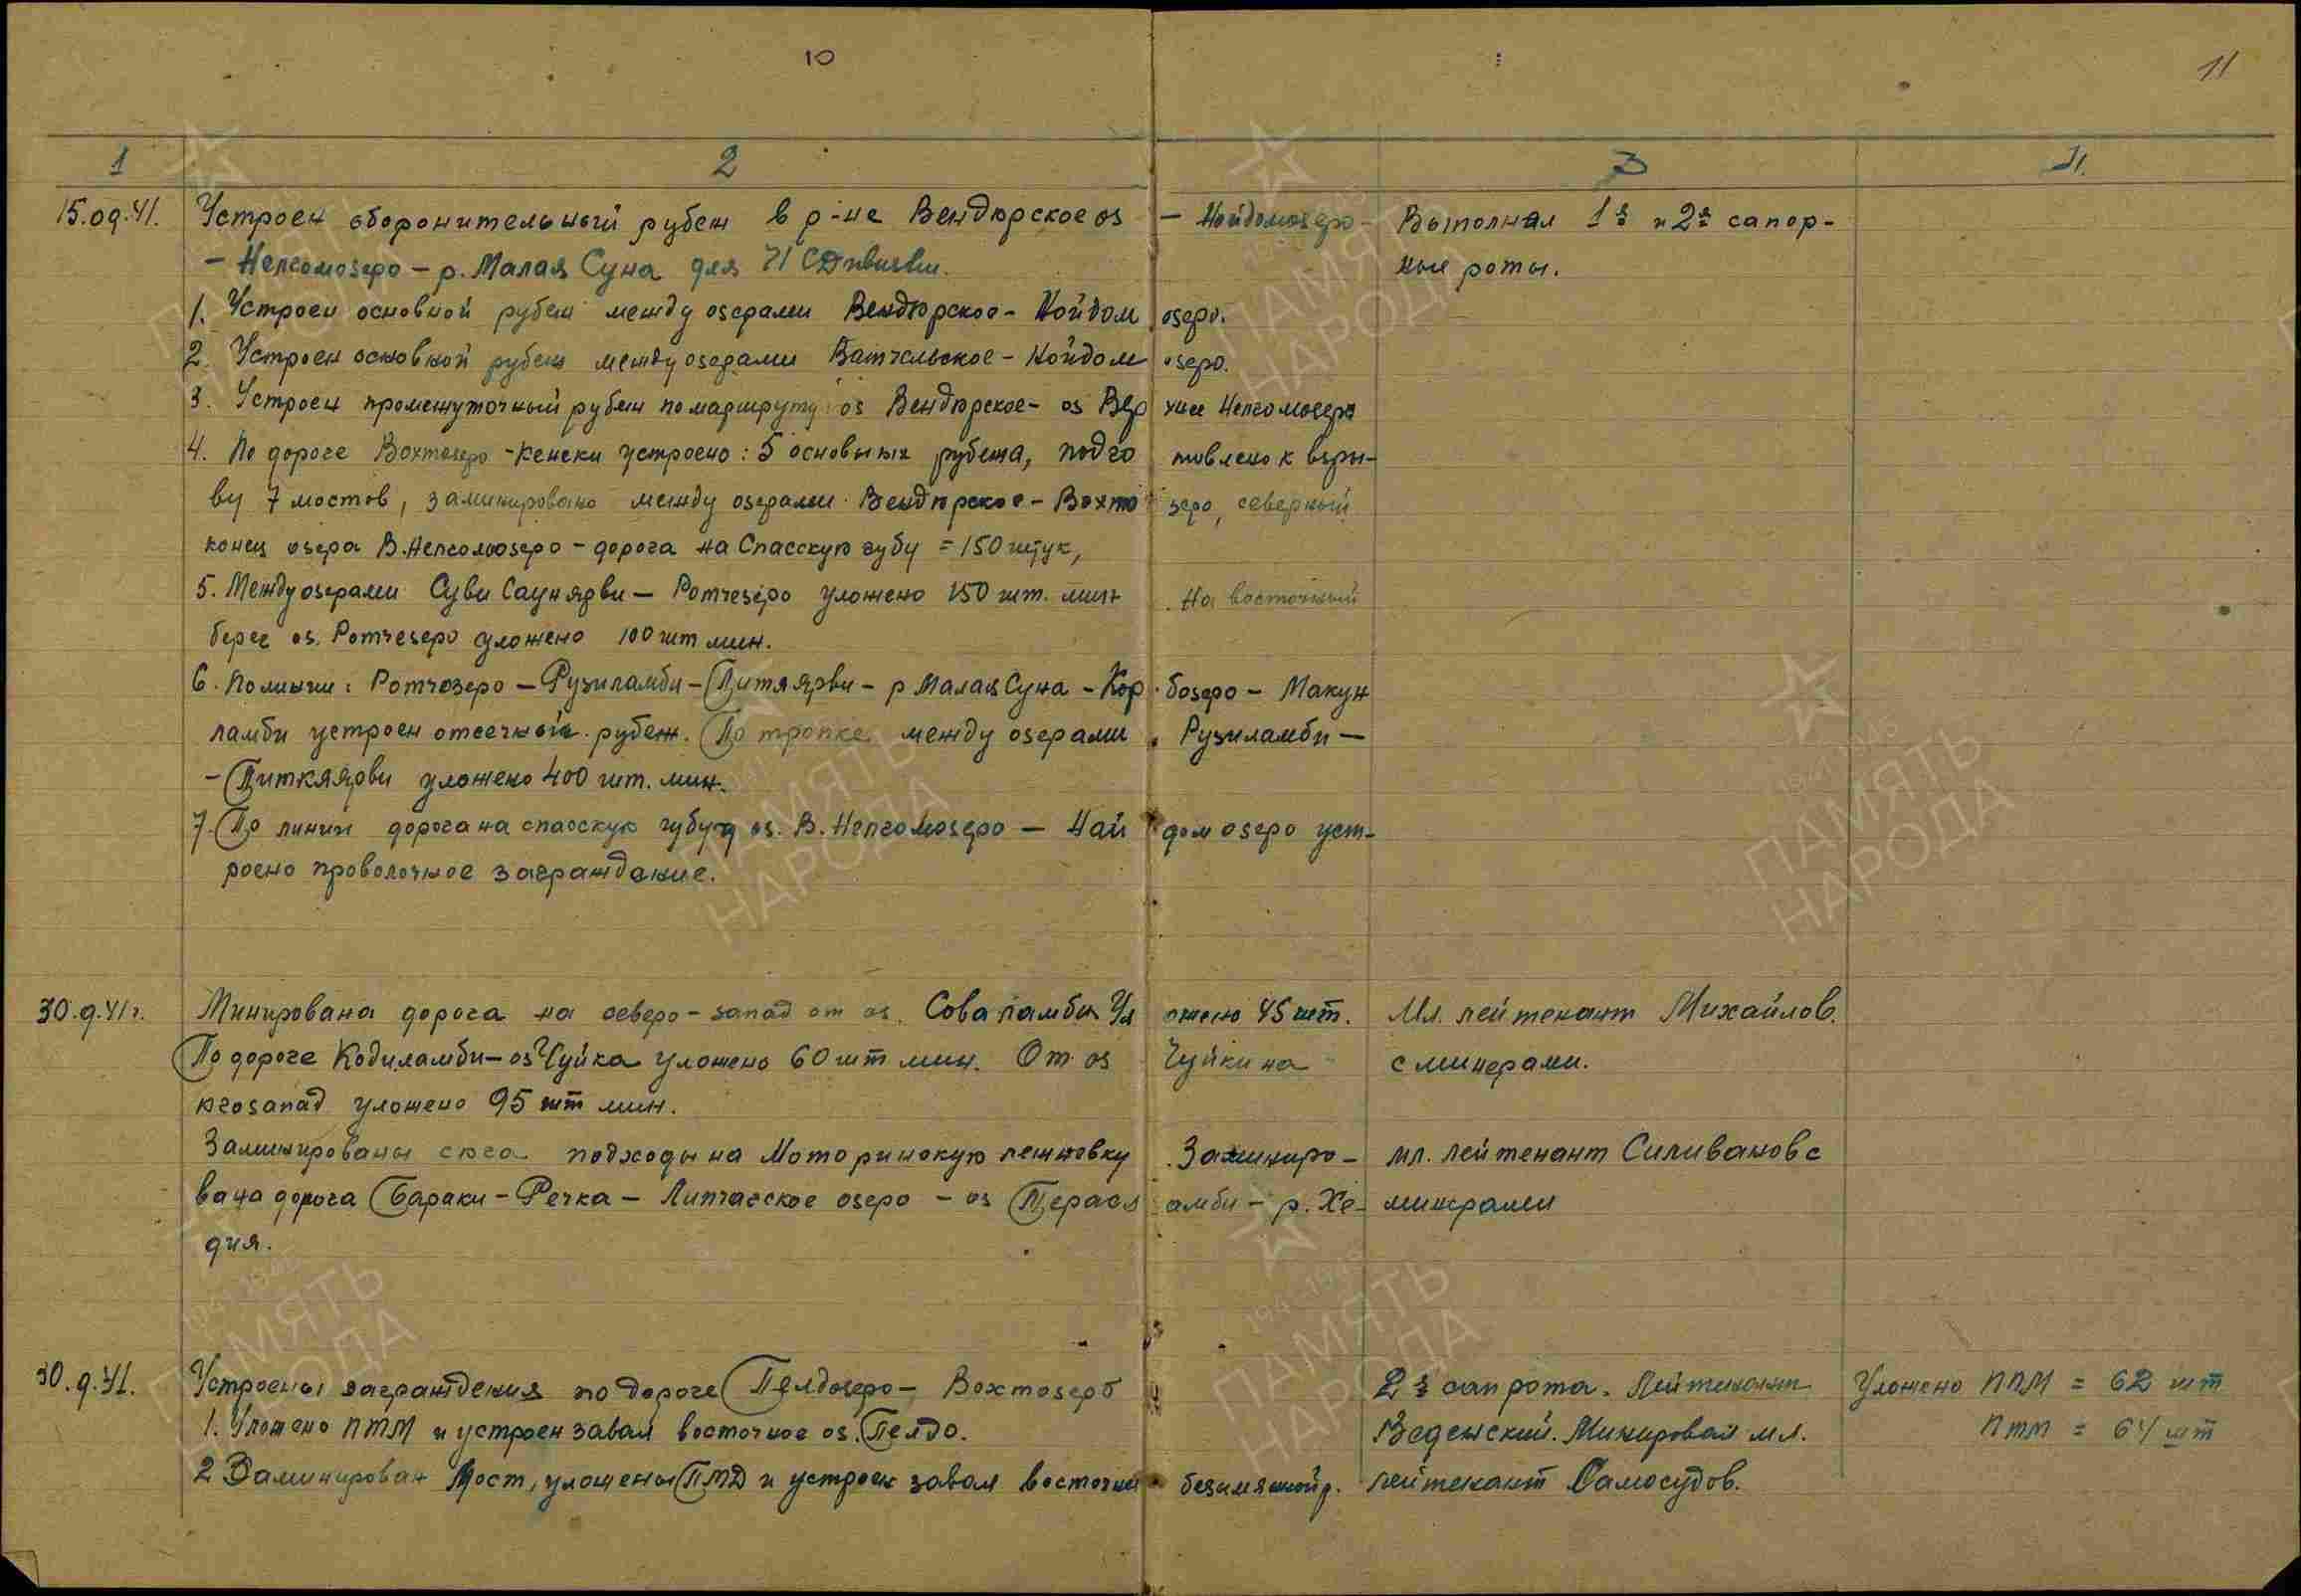 10
11
1 2 3 4.
15.09.41. Устроен оборонительный рубеж в р-не Вендюрское оз - Нойдомозеро - Выполнял 1я и 2я сапор-
- Непгомозеро - р. Малая Суна для 71 СДивизии. ные роты.
1. Устроен основной рубеж между озерами Вендюрское - Нойдом озеро.
2. Устроен основной рубеж между озерами Ватчельское - Нойдом озеро.
3. Устроен промежуточный рубеж по маршруту оз Вендюрское - оз Вер хнее Непгомозеро
4. По дороге Вохтозеро - Кенски устроено: 5 основных рубежа, подго товлено к взры-
ву 7 мостов, заминировано между озерами Вендюрское - Вохто зеро, северный
конец озера В.Непгомозеро - дорога на Спасскую губу = 150 штук,
5. Между озерами Суви Саунярви - Ротчезеро уложено 150 шт. мин. На восточный
берег оз. Ротчезеро уложено 100 шт мин.
6. По линии: Ротчозеро - Рузиламби - Питяярви - р Малая Суна - Кор бозеро - Макун
ламби устроен отсечный рубеж. По тропке между озерами Рузиламби -
- Питкяярви уложено 400 шт. мин.
7. По линии дорога на спасскую губу оз. В. Непгомозеро - Най дом озеро уст-
роено проволочное заграждение.
30.9.41г. Минирована дорога на северо-запад от оз. Соваламби Ул ожено 45 шт. Мл. лейтенант Михайлов.
По дороге Кодиламби - оз Чуйка уложено 60 шт мин. От оз Чуйки на с минерами.
югозапад уложено 95 шт мин.
Заминированы с юга подходы на Моторинскую лежневку. Заминиро- мл. лейтенант Силиванов с
вана дорога Бараки - Речка - Литчасское озеро - оз Перасл амби - р. Хе- минерами
дия.
30.9.41. Устроены заграждения по дороге Пелдозеро - Вохтозеро 2я сап рота. Лейтенант Уложено ППМ = 62 шт
1. Уложено ПТМ и устроен завал восточное оз. Пелдо. Веденский. Минировал мл. ПТМ = 64 шт
2 Заминирован Мост, уложены ПМД и устроен завал восточн безимяной р. лейтенант Самосудов.
ПАМЯТЬ
НАРОДА
1941 1945